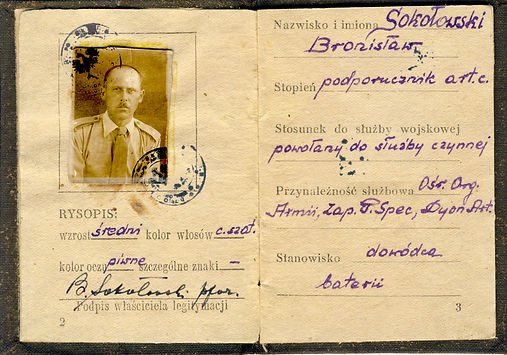 RYSOPIS:
wzrost średni kolor włosów c. szat.
kolor oczu piwne szczególne znaki –
B. Sokolowski ppor.
Podpis właściciela legitymacji
2
Nazwisko i imiona Sokołowski
Bronisław
Stopień podporucznik art. c.
Stosunek do służby wojskowej
powołany do służby czynnej
Przynależność służbowa Ośr. Org.
Armii, Zap. P. Spec, Dyon Art.
Stanowisko dowódca
baterii
3